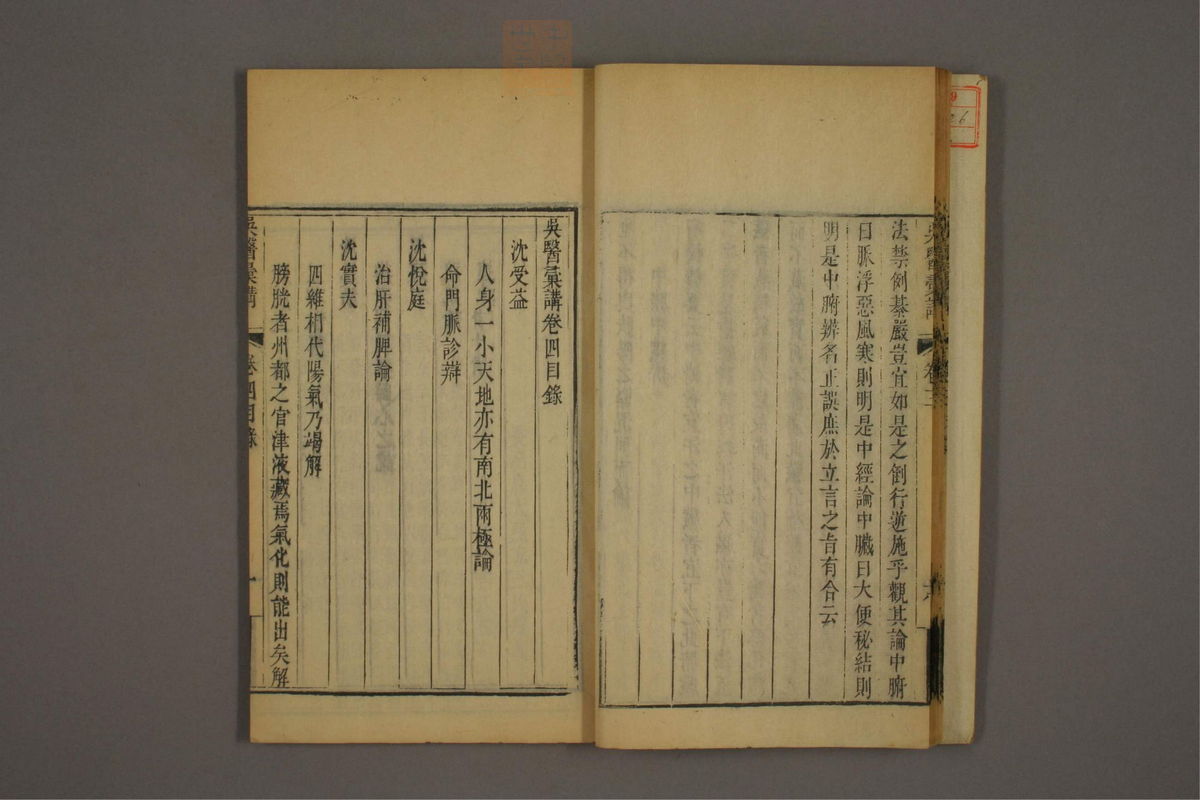 法禁例綦嚴豈宜如是之倒行逆施乎觀其論中腑
曰脈浮惡風寒則明是中經論中臟曰大便秘結則
明是中腑辨名正誤庶於立言之旨有合云
吳醫彙講卷四目錄
沈受益
人身一小天地亦有南北兩極論
命門脈診辯
沈悅庭
治肝補脾論
沈實夫
四維相代陽氣乃竭解
膀胱者州都之官津液藏焉氣化則能出矣解
吳醫彙講
卷四目錄
一